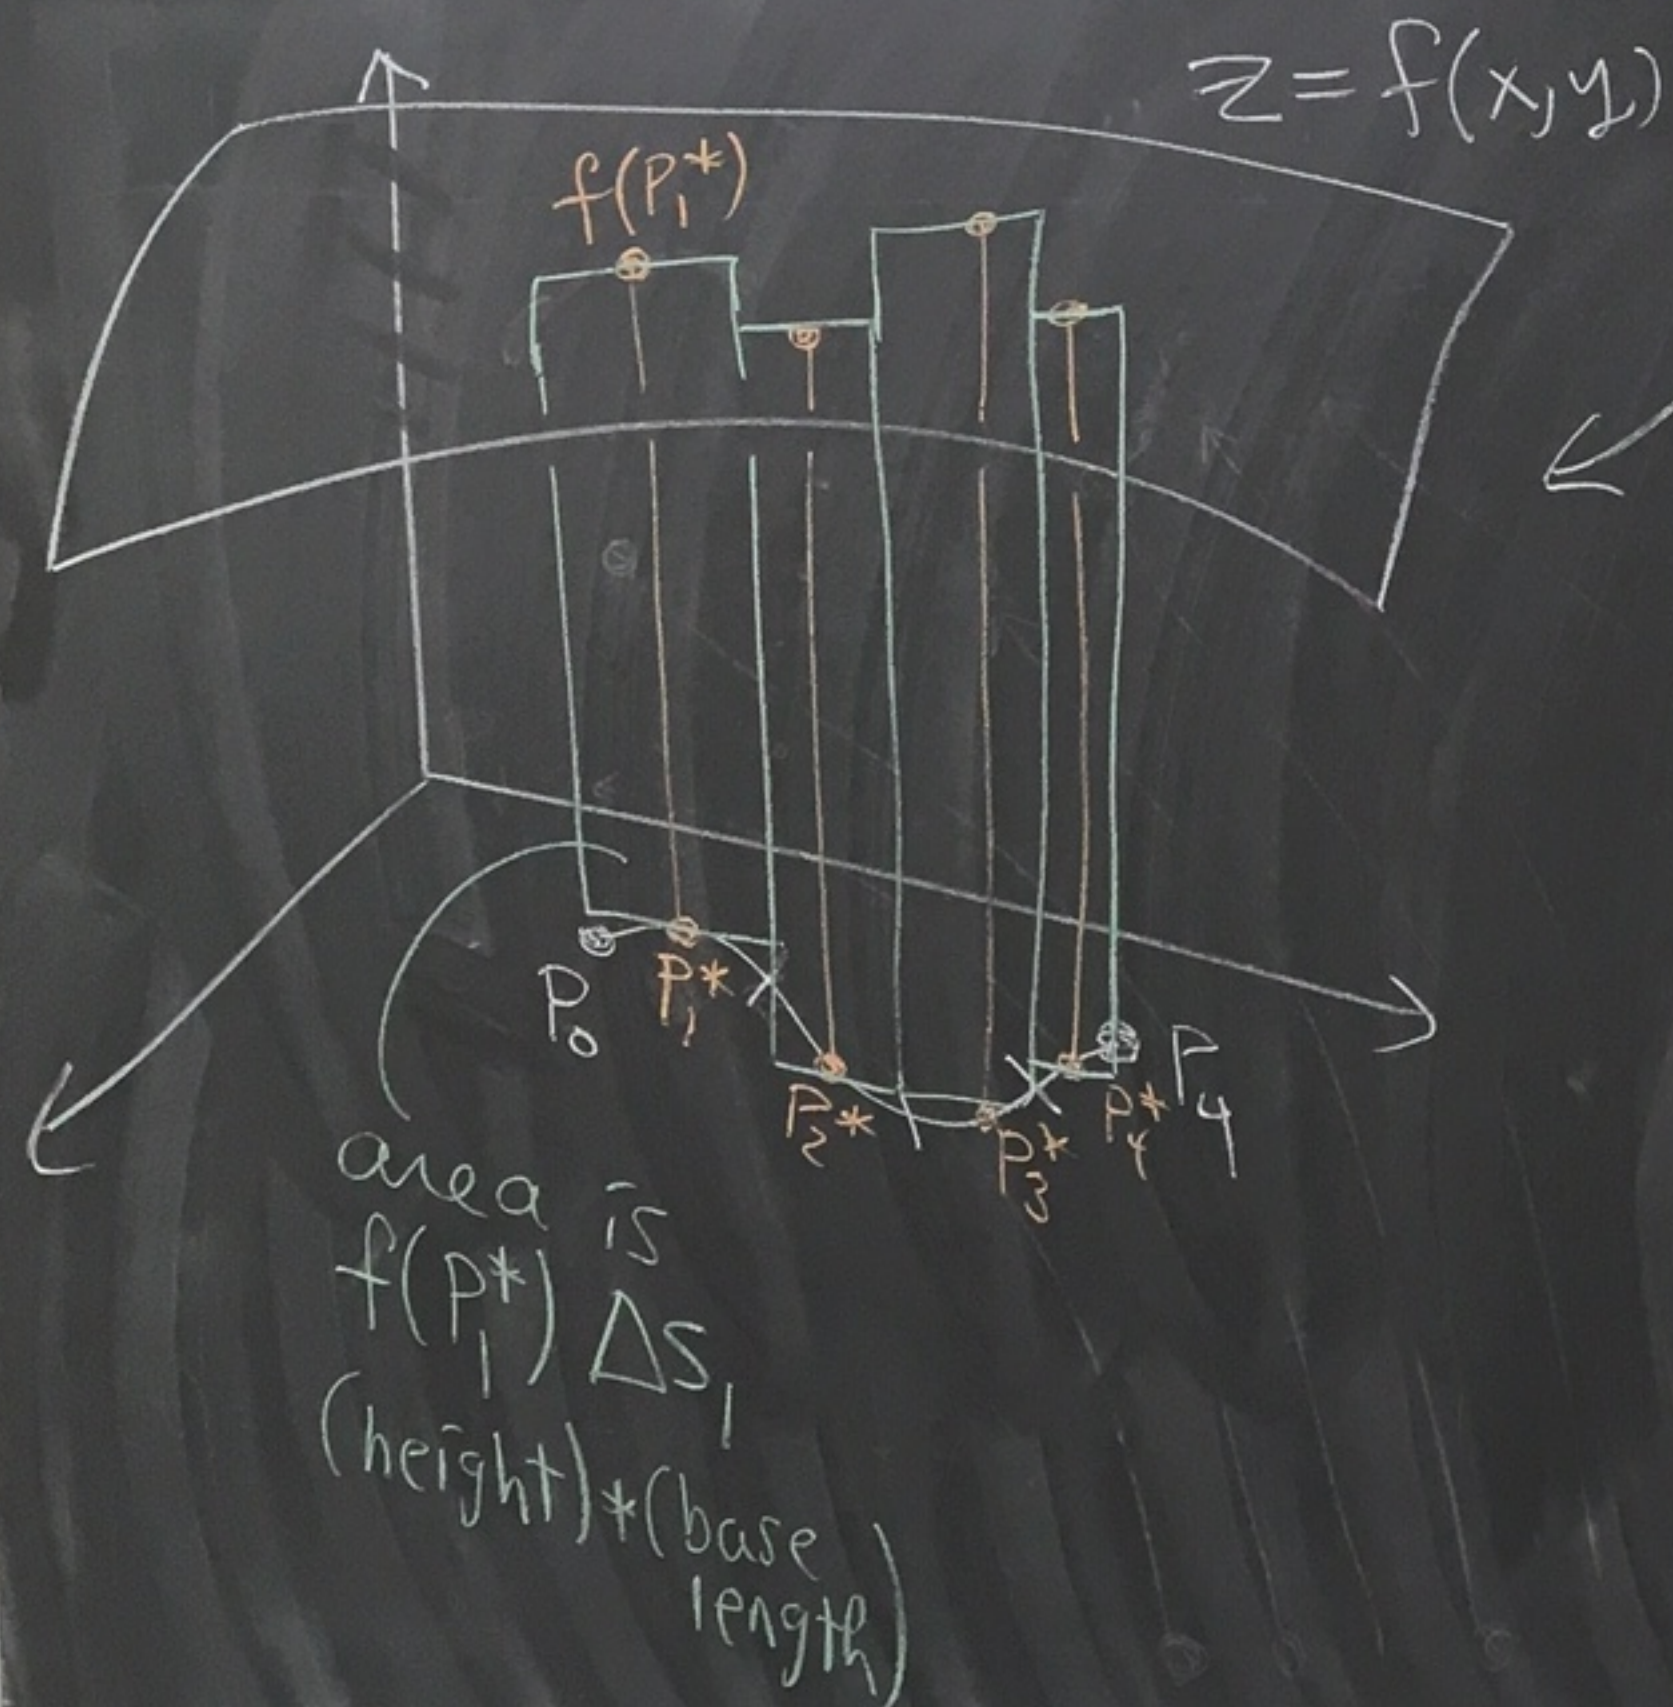 z=f(x,y)
f(P₁*)
P₀
P₁*
P₂*
P₃*
P₄*
P₄
area is
f(P₁*) Δs₁
(height)*(base
length)